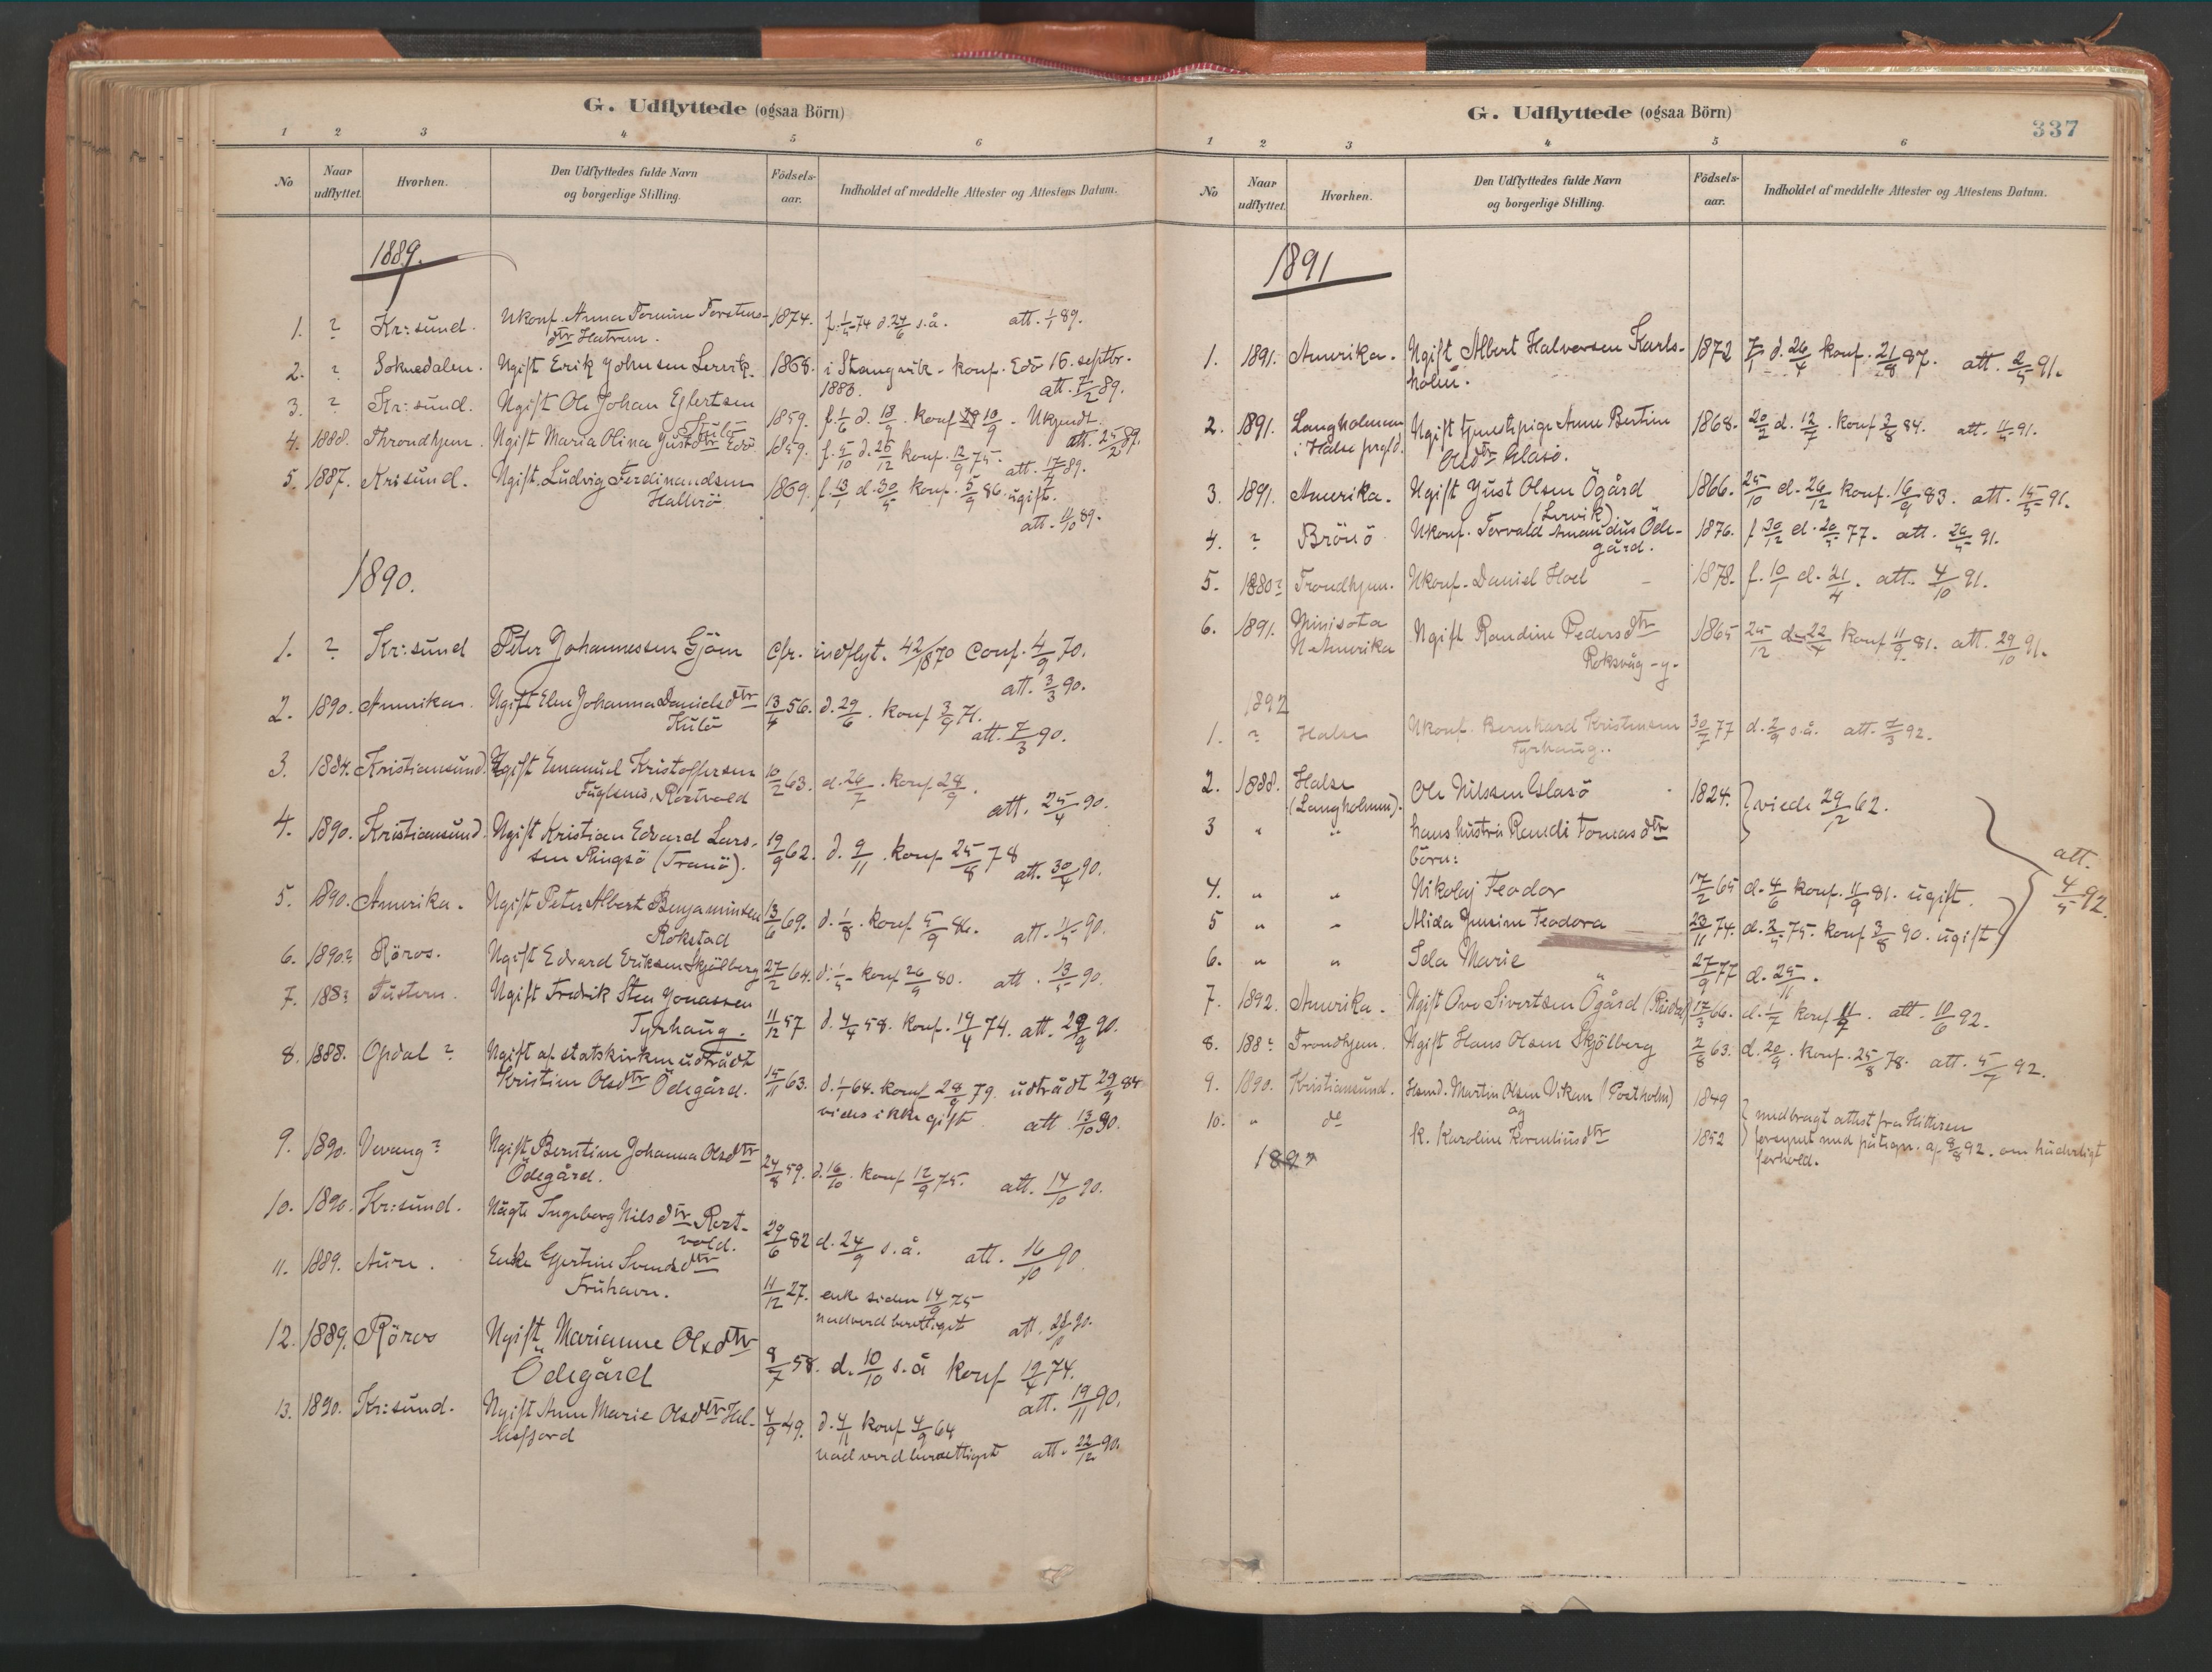 G. Udflyttede (ogsaa Börn)
1 2 3 4 5 6
No Naar udflyttet. Hvorhen. Den Udflyttedes fulde Navn og borgerlige Stilling. Födsels-aar. Indholdet af meddelte Attester og Attestens Datum.
1889.
1. ? Kr:sund. Ukonf. Anna Torstens- 1874. f. 74 d. 24/6 s.å. att. 1/1 89.
dtr Hatren.
2. ? Soknedalen. Ugift Erik Johnsen Lervik. 1868. i Stangvik - konf. Edö 16. septbr.
1883. att. 7/2 89.
3. ? Kr:sund. Ugift Ole Johan Eilertsen 1859. f. 1/6 d. 13/9. konf 10/9 - Ukjendt.
Kulö att. 25/2 89.
4. 1888. Throndhjem. Ugift Maria Olina Justdtr Edö 1859. f. 5/10 d. 26/12 konf. 12/9 75.
att. 17/7 89.
5. 1887. Krisund. Ugift. Ludvig Ferdinandsen 1869. f. 13/1 d. 30/5 konf. 5/9 86. ugift.
Hallerö att. 11/10 89.
1890.
1. ? Kr:sund Peter Johannessen Gjöen Cfr. indflyt. 42/1870 Conf. 4/9 70.
att. 3/3 90.
2. 1890. Amerika. Ugift Elen Johanna Danielsdtr 13/4 56. d. 29/6. konf 3/9 71.
Kulö att. 7/3 90.
3. 1884. Kristiansund. Ugift Emanuel Kristoffersen 10/2 63. d. 26/7. konf 28/9.
Fuglenes, Rostvold att. 25/4 90.
4. 1890. Kristiansund. Ugift Kristian Edvard Lars- 19/9 62. d. 9/11. konf 25/8 78
sen Ringsö (Tranö). att. 30/4 90.
5. 1890. Amerika. Ugift Peter Albert Benjaminsen 13/6 69. d. 1/8. konf 5/9 86. att. 11/5 90.
Rokstad
6. 1890? Röros. Ugift Edvard Eriksen Skjölberg 27/2 64. d. 1/5 konf 26/9 80. att. 13/5 90.
7. 188? Tustern. Ugift Fredrik Sten Jonassen
Tyrhaug. 11/12 57 d. 4/4 58. konf. 19/4 74. att. 29/9 90.
8. 1888. Opdal ? Ugift af statskirken udtrådt
Kristine Olsdtr Ödegård. 15/11 63. d. 1/1 64. konf 28/9 79. udtrådt 29/9 84
vides ikke gift att. 13/10 90.
9. 1890. Vevang ? Ugift Berntine Johanna Olsdtr
Ödegård. 24/8 59. d. 16/10. konf 12/9 75. att. 14/10 90.
10. 1890. Kr:sund. Ingeborg Nilsdtr Rost-
vold. 29/6 82 d. 24/9 s.å. att. 16/10 90
11. 1889. Aure. Enke Gjertine Svendsdtr
Fruhavn. 11/12 27. enke siden 14/9 75
nadverdberettiget att. 90.
12. 1889. Röros Ugift Marianne Olsdtr
Ödegård 8/7 58. d. 10/10 s.å konf 19/4 74.
att. 19/11 90.
13. 1890. Kr:sund. Ugift Anne Marie Olsdtr Hal- 4/9 49. d. 4/11 konf 4/9 64
lesfjord nadverdberættiget att. 22/12 90.
G. Udflyttede (ogsaa Börn)
337
1 2 3 4 5 6
No Naar udflyttet. Hvorhen. Den Udflyttedes fulde Navn og borgerlige Stilling. Födsels-aar. Indholdet af meddelte Attester og Attestens Datum.
1891
1. 1891. Amerika. Ugift Albert Halvorsen Karls- 1872 7/1 d. 26/4 konf. 21/8 87. att. 2/5 91.
holm.
2. 1891. Langholmen Ugift tjenestpige Anne Bertine 1868. 20/2 d. 12/7. konf 3/8 84. att. 11/5 91.
i Halse prgld. Olsdtr Glasö.
3. 1891. Amerika. Ugift Just Olsen Ögård 1866. 25/10 d. 26/12 konf. 16/9 83. att. 15/5 91.
(Lervik)
4. ? Brönö Ukonf. Torvald Amandus Öde- 1876. f 30/12 d. 20/5 77. att. 26/5 91.
gård.
5. 1880? Trondhjem. Ukonf. Daniel Hoel - 1878. f. 10/1 d. 21/4. att. 4/10 91.
6. 1891. Minisota Ugift Randine Pedersdtr 1865 25/12 d. 22/4 konf 11/9 81. att. 29/10 91.
N Amerika Roksvåg -y-
1892
1. ? Halse Ukonf. Bernhard Kristensen 30/7 77 d. 2/9 s.å. att. 7/3 92.
Tyrhaug..
2. 1888. Halse Ole Nilssen Glasö 1824. viede 29/12 62.
(Langholmen).
3 " " hans hustru Randi Tomasdtr
börn:
4. " " Nikolaj Teodor 17/2 65 d. 4/6 konf. 11/9 81. ugift.
5 " " Alida Jensine Teodora 23/11 74. d. 2/5 75. konf 3/8 90. ugift
att. 4/5 92.
6. " " Ida Marie 27/9 77 d. 25/11.
7. 1892. Amerika. Ugift Ove Sivertsen Ögård 17/3 66. d. 1/7 konf 11/9. att. 10/6 92.
8. 188? Trondhjem. Ugift Hans Olsen Skjölberg 2/8 63. d. 20/9. konf. 25/8 78. att. 5/7 92.
9. 1890. Kristiansund. Hsmd. Martin Olsen Vikan (Postholm) 1849
og medbragt attest fra Hitteren
10. " do k. Karoline Korneliusdtr 1852 forsynet med påtegn. af 8/8 92. om hæderligt
forhold.
189